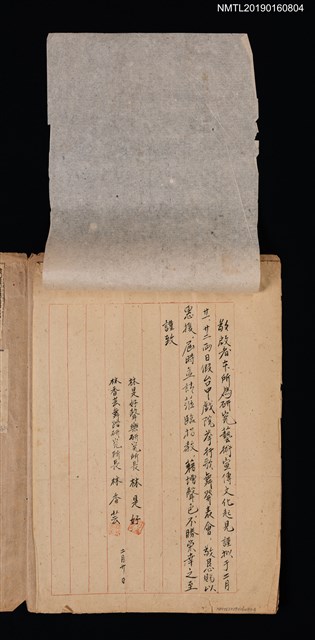 NMTL20190160804
敬啟者本所為研究藝術宣傳文化起見謹擬于二月
廿一廿二兩日假台中戲院舉行歌舞發表會敬恳賜以
恩援屆時並請蒞臨指教藉增聲色不勝榮幸之至
謹致
林是好聲樂研究所長 林是好
林香芸舞踏研究所長 林香芸
二月廿日